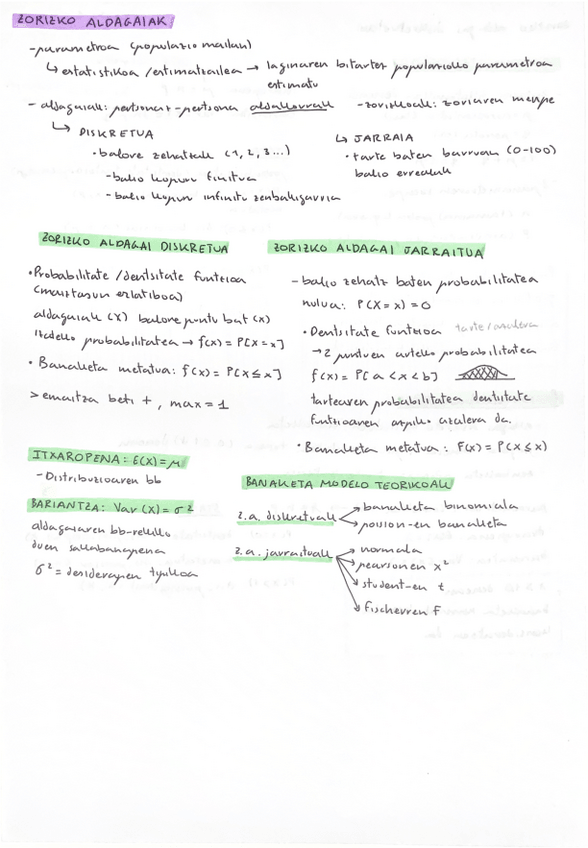 ZORIZKO ALDAGAIAK
-parametroa (populazio mailan)
↳ estatistikoa /estimatzailea → laginaren bitartez populazioko parametroa
estimatu
- aldagaiak: pertsonat-pertsona aldakorrak
-zorizkoak: zoriaren menpe
↳ DISKRETUA
• balore zehatzak (1, 2, 3...)
-balio kopuru finitua
- balio kopuru infinitu zenbakigarria
↳ JARRAIA
• tarte baten barruan (0-100)
balio errealak
ZORIZKO ALDAGAI DISKRETUA
•Probabilitate /dentsitate funtzioa
(maiztasun erlatiboa)
aldagaiak (X) balore puntu bat (x)
izateko probabilitatea → f(x) = P[X=x]
• Banaketa metatua: f(x) = P(X≤x]
> emaitza beti +, max = 1
ZORIZKO ALDAGAI JARRAITUA
- balio zehatz baten probabilitatea
nulua: P(X=x) = 0
• Dentsitate funtzioa tarte/azalera
→ 2 punturen arteko probabilitatea
f(x) = P[a<x<b]
tartearen probabilitatea dentsitate
funtzioaren azpiko azalera da
• Banaketa metatua: F(x) = P(X≤x)
ITXAROPENA: E(X)=μ
- Distribuzioaren bb
BARIANTZA: Var (X) = σ²
aldagaiaren bb-rekiko
duen sakabanapena
σ² = desiderapen tipikoa
BANAKETA MODELO TEORIKOAK
z.a. diskretuak
banaketa binomiala
poision-en banaketa
z.a. jarraituak
normala
pearsonen x²
student-en t
fischerren F